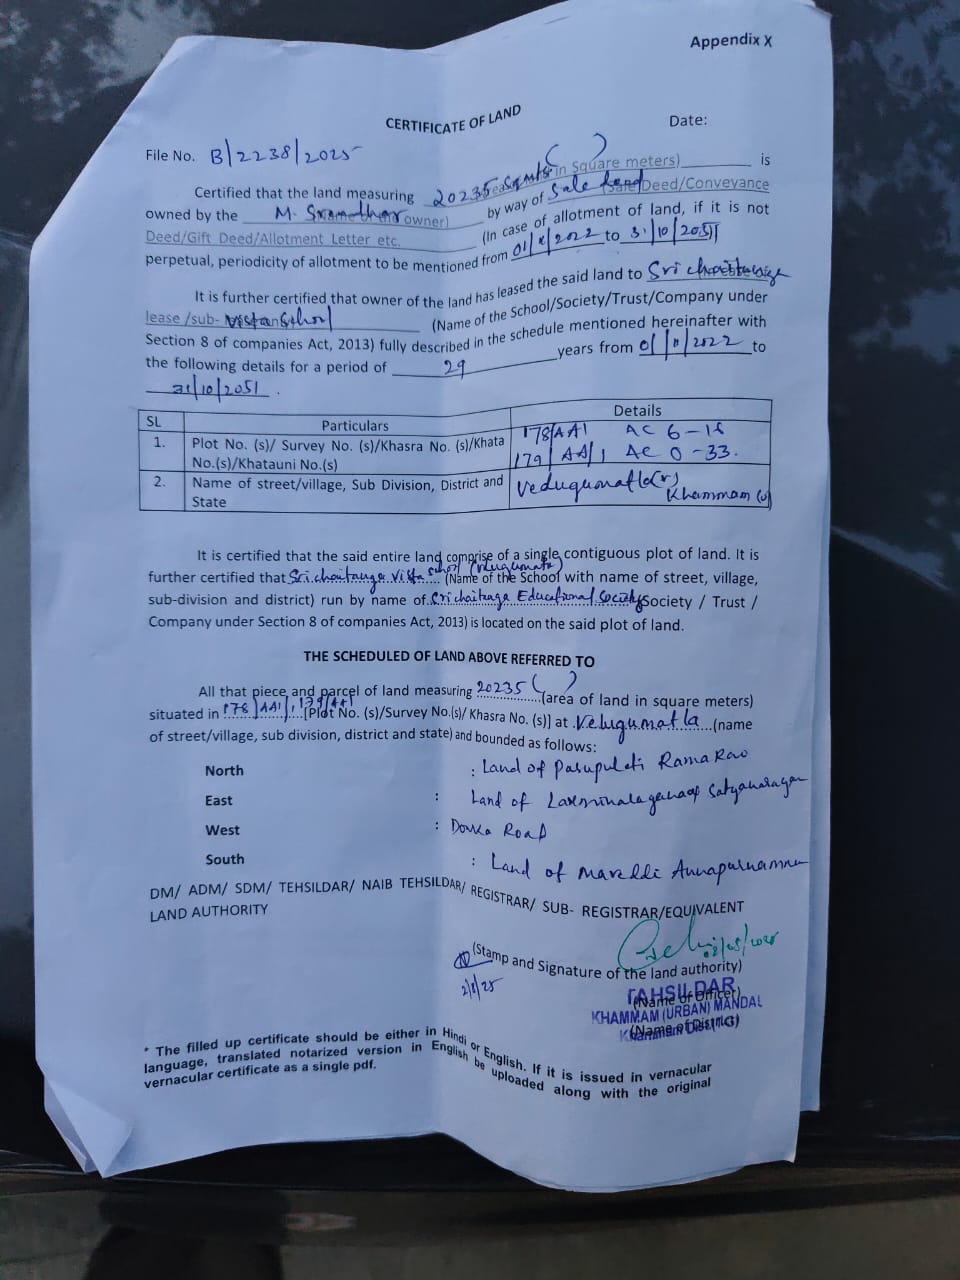 Appendix X
CERTIFICATE OF LAND
Date:
File No. B/2238/2025
Certified that the land measuring 20235 Sqmts ( ) in Square meters) is
owned by the M. Sramdhar owner) by way of Sale Deed Deed/Conveyance
Deed/Gift Deed/Allotment Letter etc. (In case of allotment of land, if it is not
perpetual, periodicity of allotment to be mentioned from 01/ /2022 to 31/10/2051
It is further certified that owner of the land has leased the said land to Sri chaitanya
lease /sub- Vista School (Name of the School/Society/Trust/Company under
Section 8 of companies Act, 2013) fully described in the schedule mentioned hereinafter with
the following details for a period of 29 years from 01/ /2022 to
31/10/2051.
SL Particulars Details
1. Plot No. (s)/ Survey No. (s)/Khasra No. (s)/Khata No.(s)/Khatauni No.(s) 178/AA1 AC 6-18
179/AA/1 AC 0-33.
2. Name of street/village, Sub Division, District and State Velugumatla(v)
Khammam (U)
It is certified that the said entire land comprise of a single contiguous plot of land. It is
further certified that Sri chaitanya Vista School (Velugumatla) (Name of the School with name of street, village,
sub-division and district) run by name of Sri chaitanya Educational Society Society / Trust /
Company under Section 8 of companies Act, 2013) is located on the said plot of land.
THE SCHEDULED OF LAND ABOVE REFERRED TO
All that piece and parcel of land measuring 20235 ( ) (area of land in square meters)
situated in 178/AA1, 179/AA1 [Plot No. (s)/Survey No.(s)/ Khasra No. (s)] at Velugumatla (name
of street/village, sub division, district and state) and bounded as follows:
North : Land of Pasupuleti Rama Rao
East : Land of Satyanarayan
West : Donka Road
South : Land of Mareddi Annapurnamma
DM/ ADM/ SDM/ TEHSILDAR/ NAIB TEHSILDAR/ REGISTRAR/ SUB- REGISTRAR/EQUIVALENT
LAND AUTHORITY
(Stamp and Signature of the land authority)
2/8/25
TAHSILDAR
(Name of Officer)
KHAMMAM (URBAN) MANDAL
Khammam Dist(T.G)
(Name of District)
* The filled up certificate should be either in Hindi or English. If it is issued in vernacular
language, translated notarized version in English be uploaded along with the original
vernacular certificate as a single pdf.